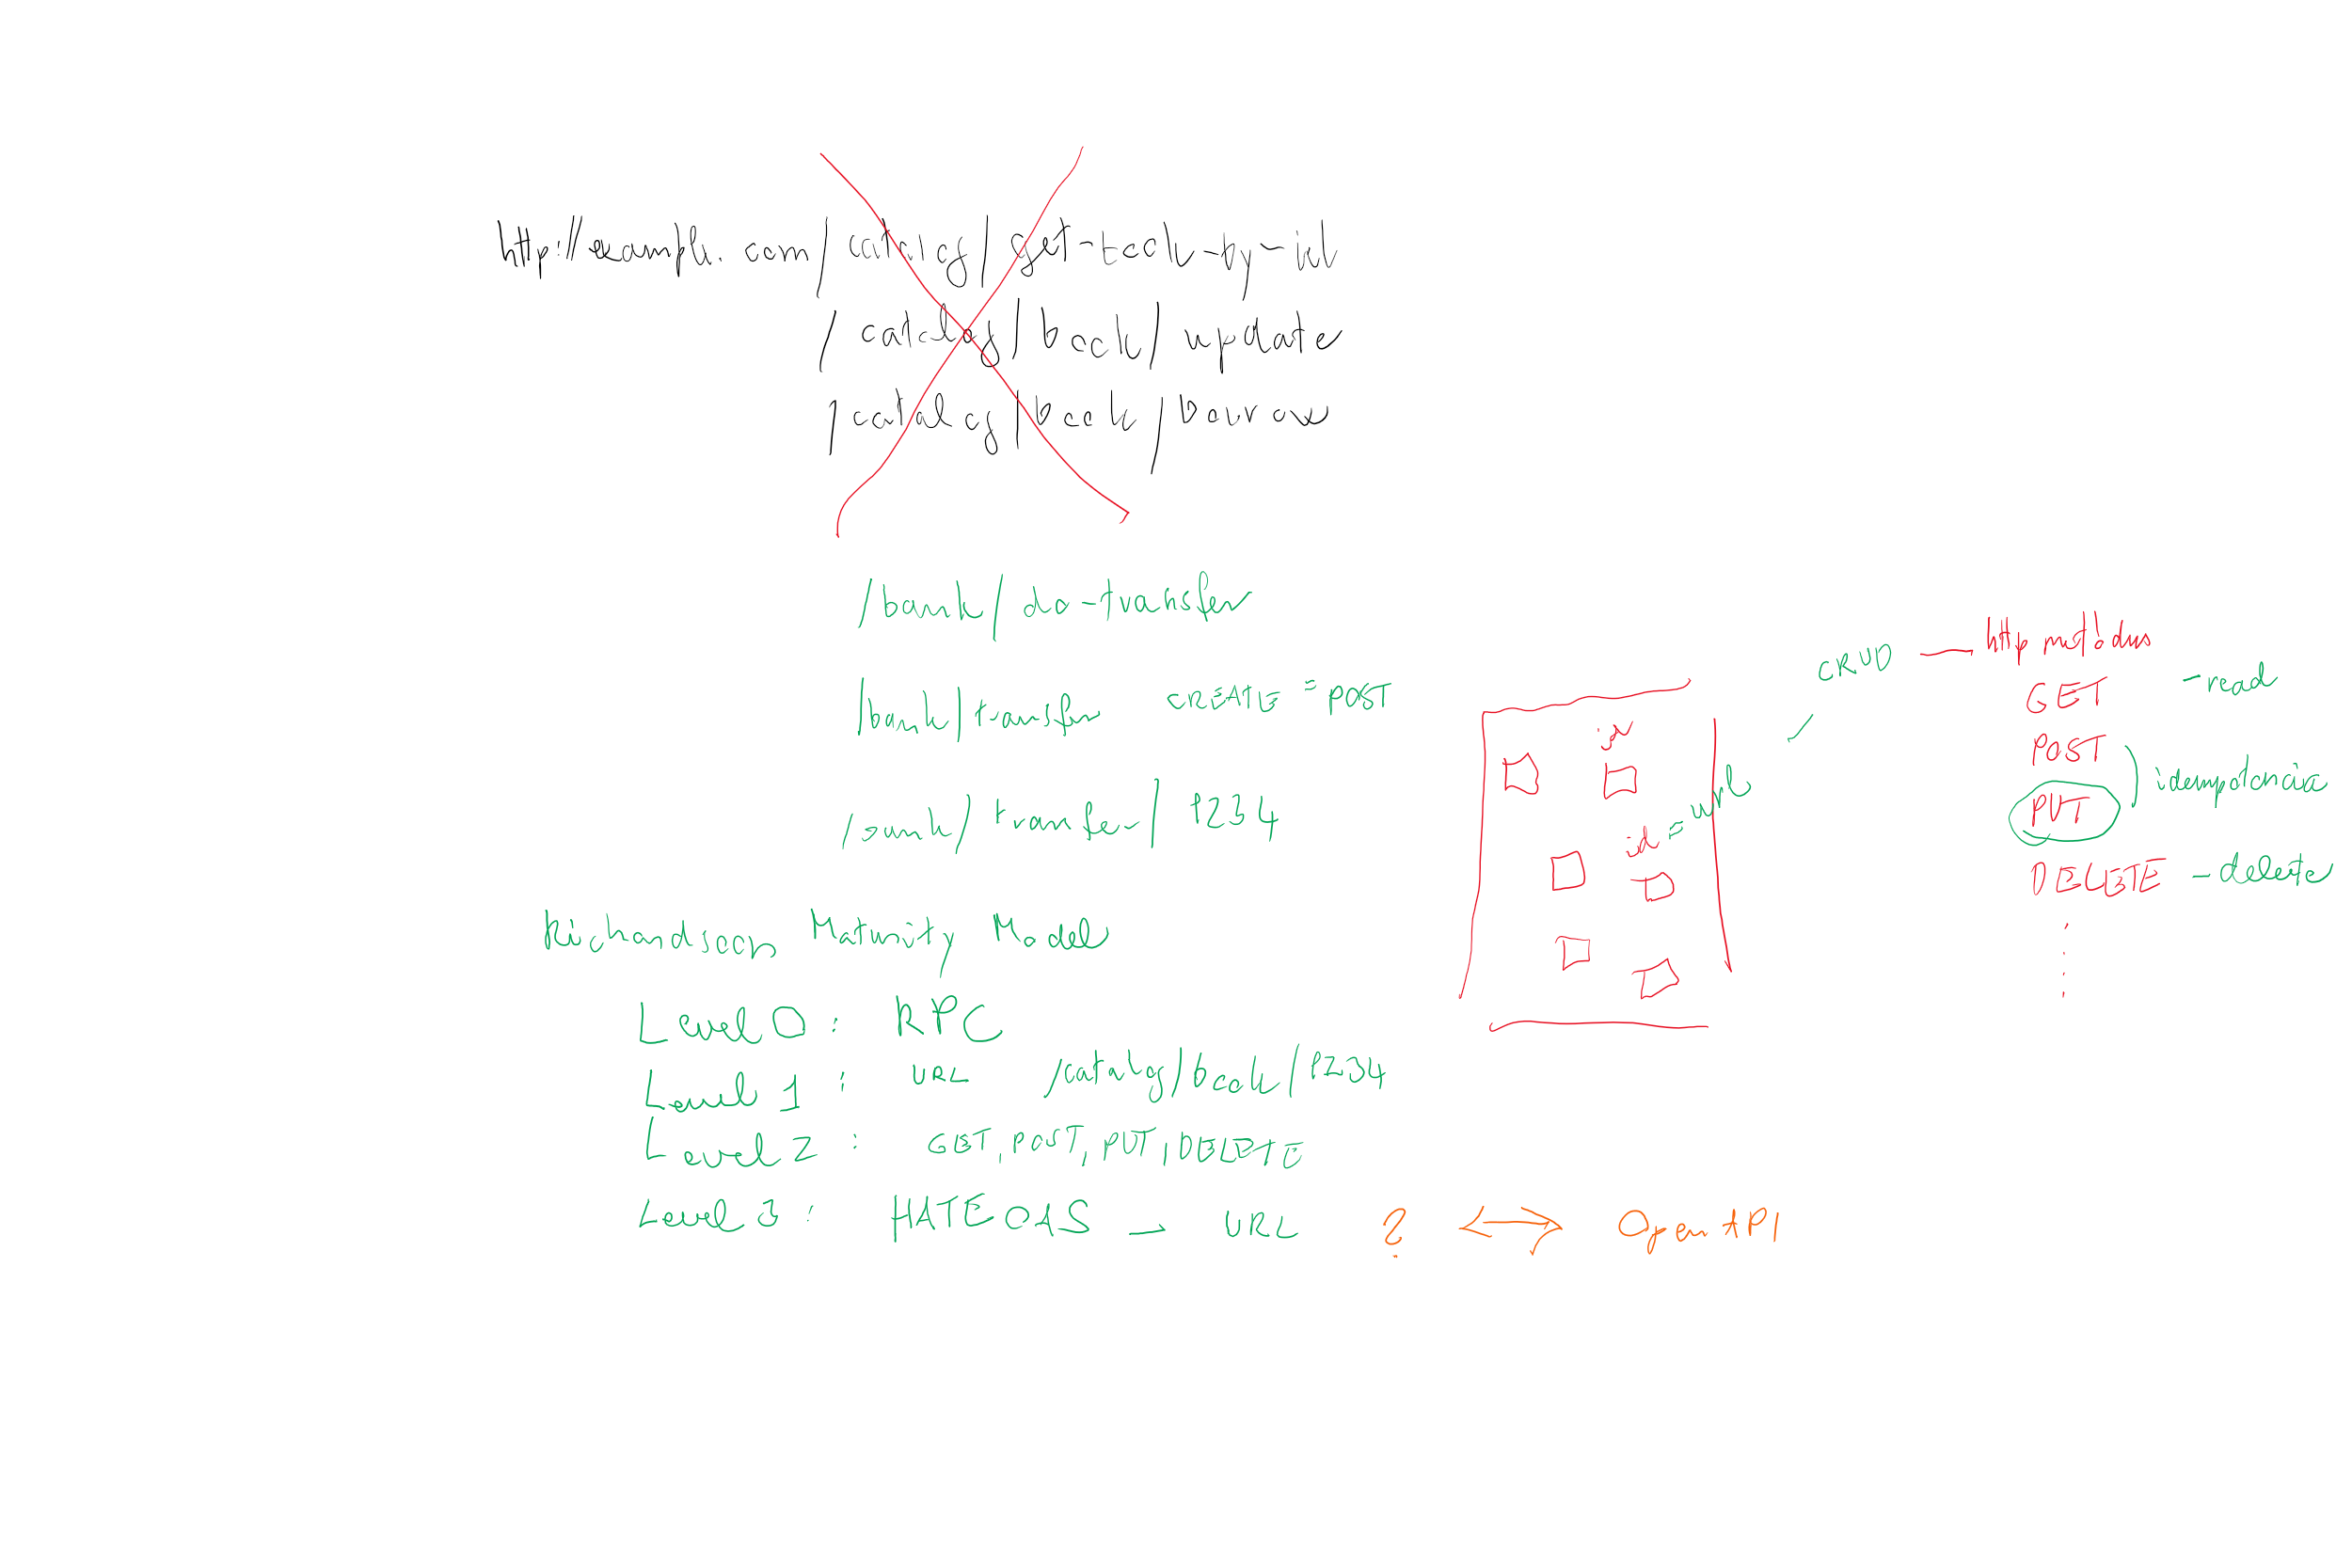 http://example.com/catalog/get-book-by-id
/catalog/book/update
/catalog/book/borrow
/bank/do-transfer
/bank/transfer CREATE = POST
/bank/transfer/1234
Richardson Maturity Model
Level 0: RPC
Level 1: URL /catalog/book/1234
Level 2: GET, POST, PUT, DELETE
Level 3: HATEOAS – URL ? OpenAPI
id
id = url
CRUD — http
GET - read
POST
PUT
DELETE - delete